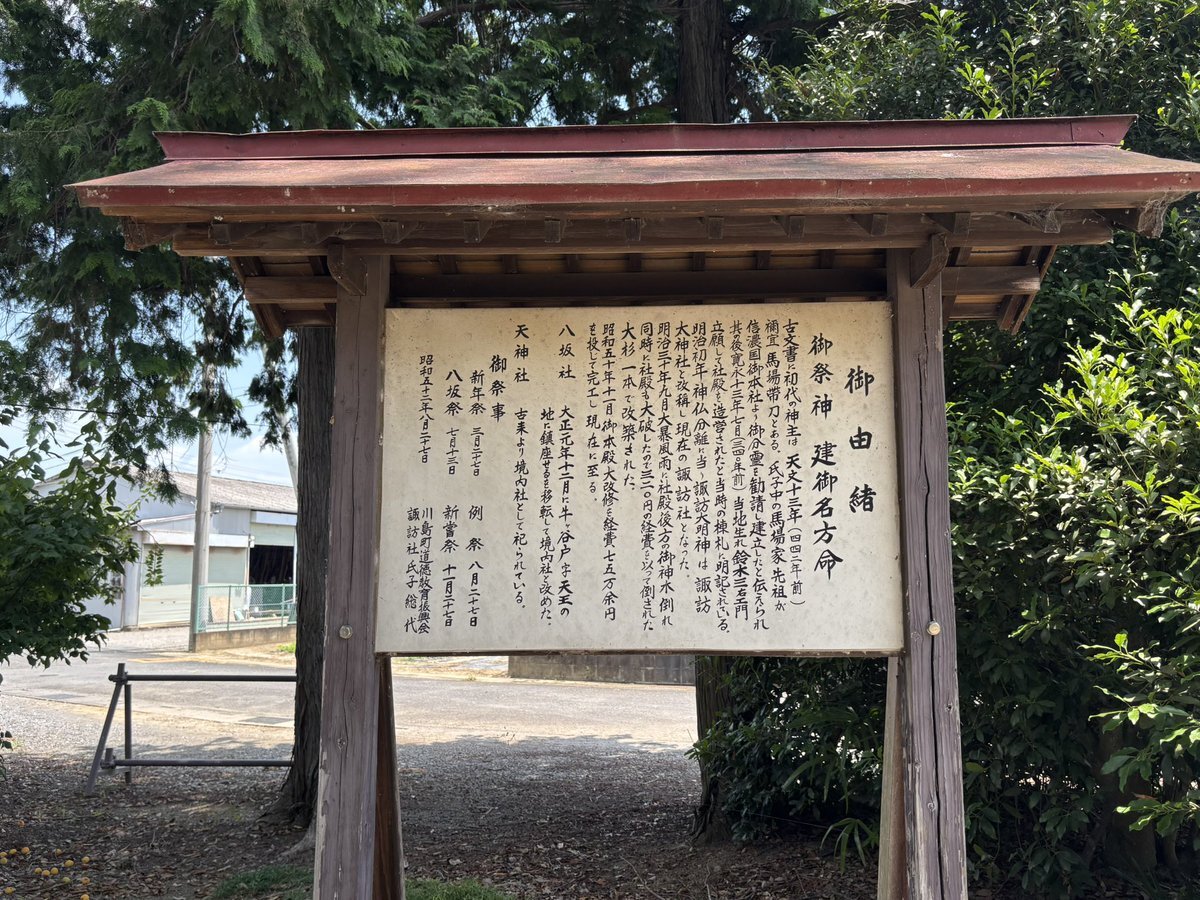 御由緒
御祭神 建御名方命
古文書に初代の神主は天文十三年(四四二年前)
禰宜馬場帯刀とある、氏子中の馬場家先祖が
信濃国御本社より御分霊を勧請し建立したと伝えられ
其の後寛永十三年七月(三四〇年前)当地生れ鈴木三右エ門
立願して社殿を造営されたと当時の棟札に明記されている。
明治初年神仏分離に当り諏訪大明神は諏訪
大神社と改称し現在の諏訪社となった
明治三十年九月大暴風雨に社殿後方の御神木倒れ
同時に社殿も大破したので三二〇円の経費を以って倒された
大杉一本で改築された
昭和五十年十一月御本殿大改修を経費七五万余円
を投して完工し現在に至る。
八坂社 大正元年十二月に牛ヶ谷戸字天王の
地に鎮座せるを移転して境内社と改めた。
天神社 古来より境内社として祀られている。
御祭事
新年祭 三月二十七日 例祭 八月二十七日
八坂祭 七月十三日 新嘗祭 十一月二十七日
昭和五十二年八月二十七日 川島町道徳教育振興会
諏訪社氏子総代